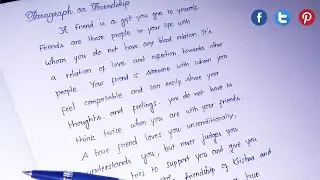 Paragraph on Friendship
A friend is a gift you give to yourself.
Friends are those people in your life with
whom you do not have any blood relation. It's
a relation of love and affection, towards other
people. Your friend is someone with whom you
feel comfortable and can easily share your
thoughts and feelings. you do not have to
think twice when you are with your friends.
A true friend loves you unconditionally,
understands you, but never judges you
tries to support you and give you
friendship of Krishna and
true